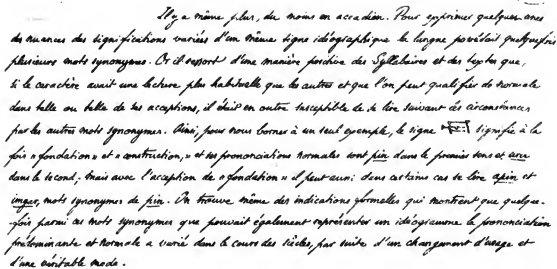 Il y a même plus, du moins en accadien. Pour exprimer quelques-unes
des nuances des significations variées d'un même signe idéographique la langue possédait quelquefois
plusieurs mots synonymes. Or il ressort d'une manière positive des Syllabaires et des textes que,
si le caractère avait une lecture plus habituelle que les autres et que l'on peut qualifier de normale
dans telle ou telle de ses acceptions, il était en outre susceptible de se lire suivant les circonstances
par les autres mots synonymes. Ainsi, pour nous borner à un seul exemple, le signe signifie à la
fois « fondation » et « construction, » et ses prononciations normales sont pin dans le premier sens et
dans le second; mais avec l'acception de « fondation » il peut aussi dans certains cas se lire apin et
, mots synonymes de pin. On trouve même des indications formelles qui montrent que quelque-
-fois parmi ces mots synonymes que pouvait également représenter un idéogramme la prononciation
prédominante et normale a varié dans le cours des siècles, par suite d'un changement d'usage et
d'une véritable mode.